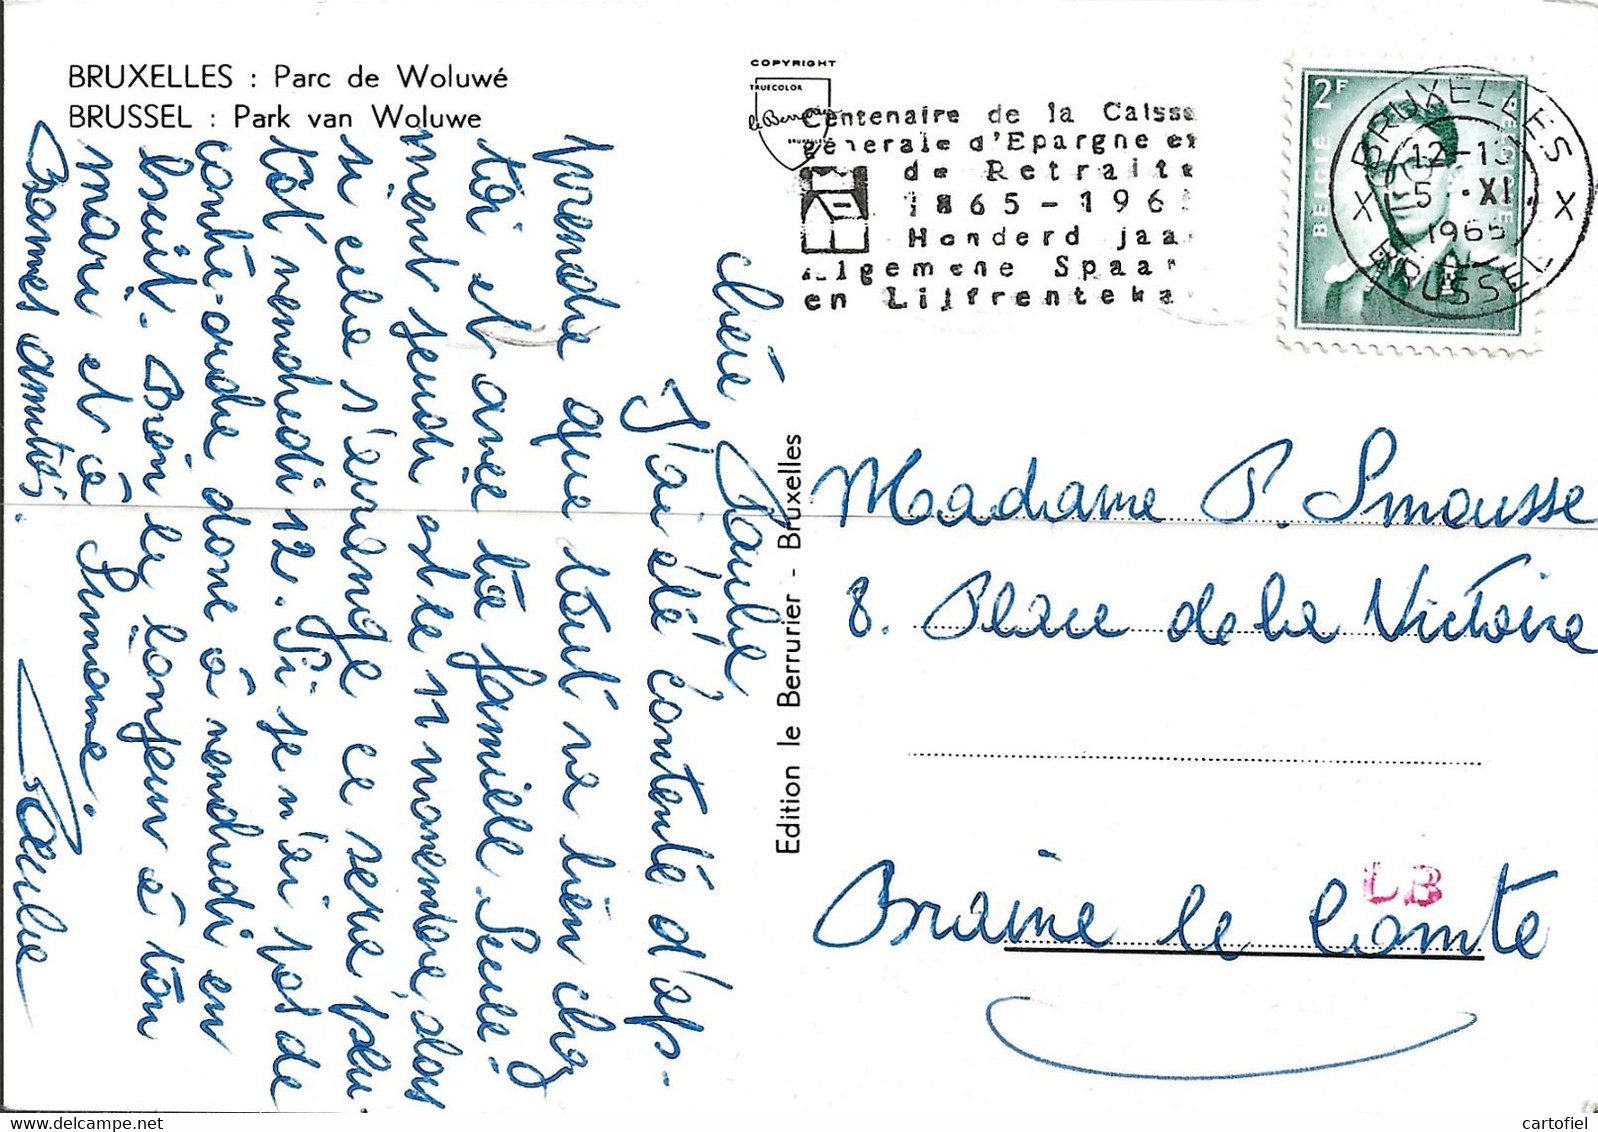 BRUXELLES : Parc de Woluwé
BRUSSEL : Park van Woluwe
COPYRIGHT
TRUECOLOR
le Berrurier
Centenaire de la Caisse
générale d'Epargne et
de Retraite
1865-196
Honderd jaa
Algemene Spaar
en Lijfrenteka
2F
BELGIE
BELGIQUE
X BRUXELLES X
12-13
5 · XI
1965
BRUSSEL
Chère Paulie
J'ai été contente d'ap-
prendre que tout va bien chez
toi et avec ta famille. Seule-
ment jeudi est le 11 novembre, alors
si cela s'arrange ce sera plu-
tôt vendredi 12. Si je n'ai pas de
contre-ordre donc à vendredi en
huit. Bien le bonjour à ton
mari et à Simone.
Bonnes amitiés.
Paulie
Edition le Berrurier - Bruxelles
Madame P. Smousse
8. Place de la Victoire
Braine le Comte
LB
cartofiel